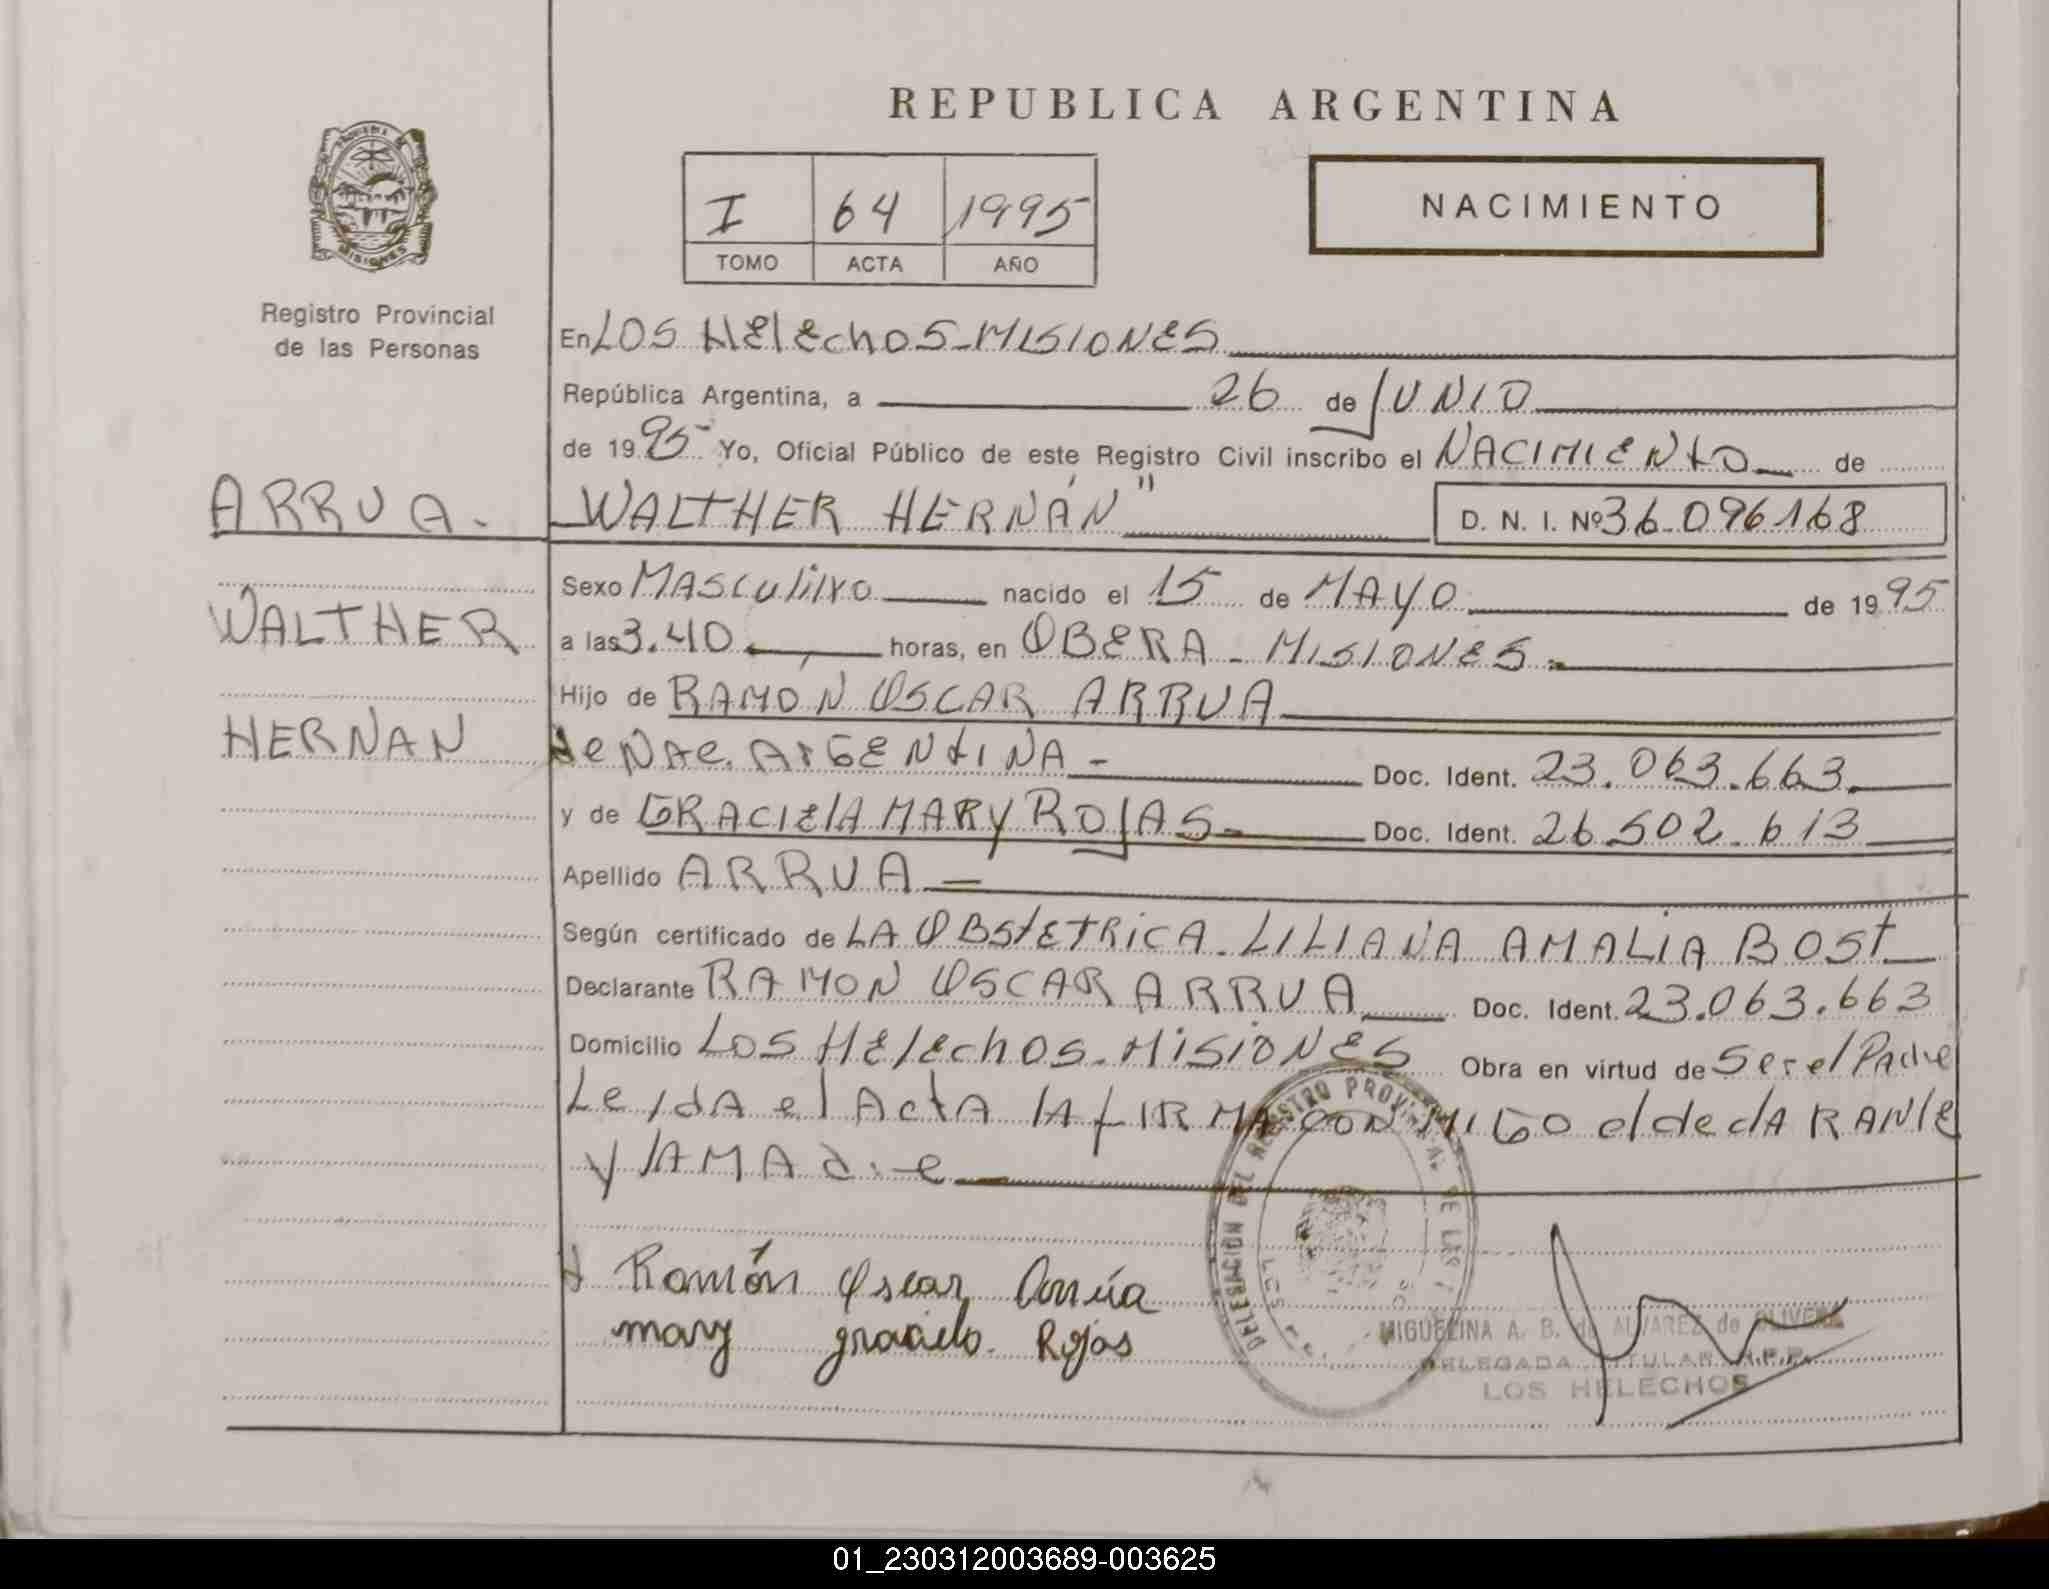 REPUBLICA ARGENTINA
I 64 1995
TOMO ACTA AÑO
NACIMIENTO
PROVINCIA DE
MISIONES
Registro Provincial
de las Personas
ARRUA.
WALTHER
HERNAN
En LOS HElEchOS-MISIONES
República Argentina, a 26 de JUNIO
de 1995 Yo, Oficial Público de este Registro Civil inscribo el NACIMIENtO de
WALTHER HERNÁN" D. N. I. Nº 36.096168
Sexo MAScUliNo nacido el 15 de MAYO de 1995
a las 3.40 horas, en OBERA - MISIONES -
Hijo de RAMÓN OSCAR ARRUA
de NAc. ArGENtINA - Doc. Ident. 23.063.663.
y de GRACIElA MARY ROJAS- Doc. Ident. 26.502.613
Apellido ARRUA -
Según certificado de LA OBStETRICA. LILIANA AMALIA BOSt
Declarante RAMON OSCAR ARRUA Doc. Ident. 23.063.663
Domicilio LOS HElEchOS-MISIONES Obra en virtud de Ser el PAdre
LeIdA el ActA lA fIRMA CON MIGO el declARANtE
y lA MAdre
Ramón Oscar Arrúa
mary graciela Rojas
DELEGACION DEL REGISTRO PROVINCIAL DE LAS
MIGUELINA A. B. de ALVAREZ de OLIVERA
DELEGADA TITULAR R.P.P.
LOS HELECHOS
01_230312003689-003625